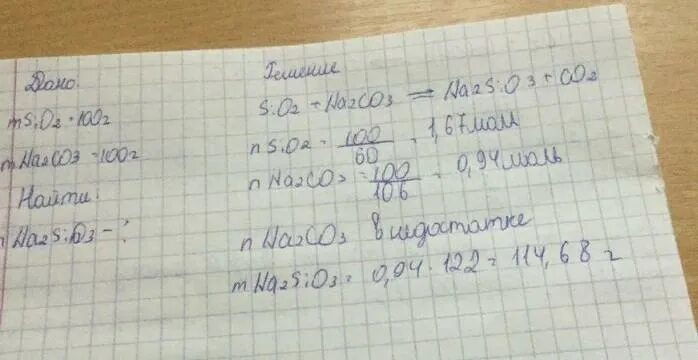 Дано:
mSiO2 = 100г
mNa2CO3 = 100г
Найти:
Na2SiO3 - ?
Решение
SiO2 + Na2CO3 = Na2SiO3 + CO2
n SiO2 = 100/60 = 1,67 моль
n Na2CO3 = 100/106 = 0,94 моль
n Na2CO3 в недостатке
mNa2SiO3 = 0,94 · 122 = 114,68 г